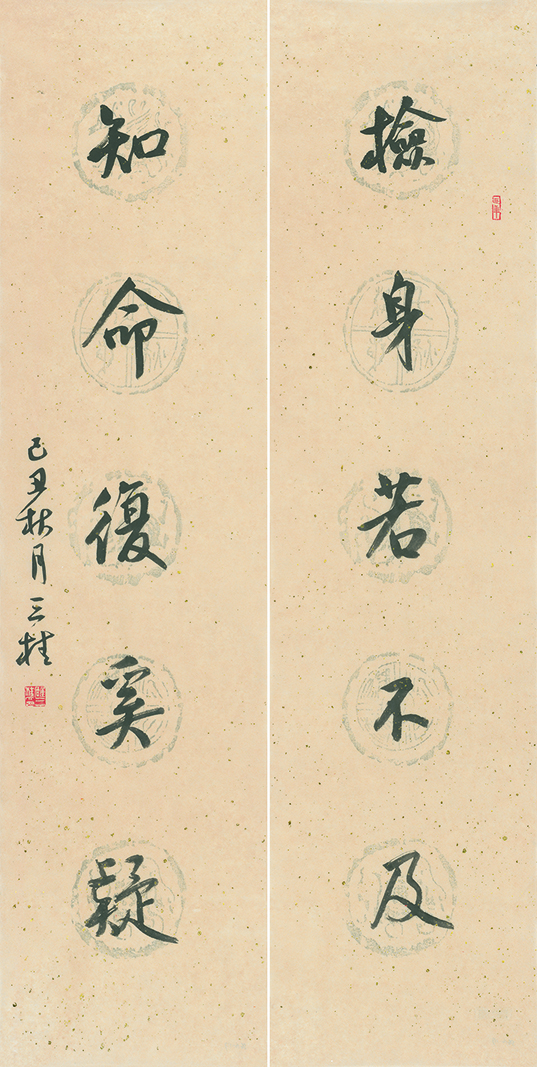 檢身若不及
知命復奚疑
己丑秋月三桂